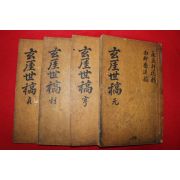 玄厓世稿 元
玄厓世稿 亨
玄厓世稿 利
玄厓世稿 貞